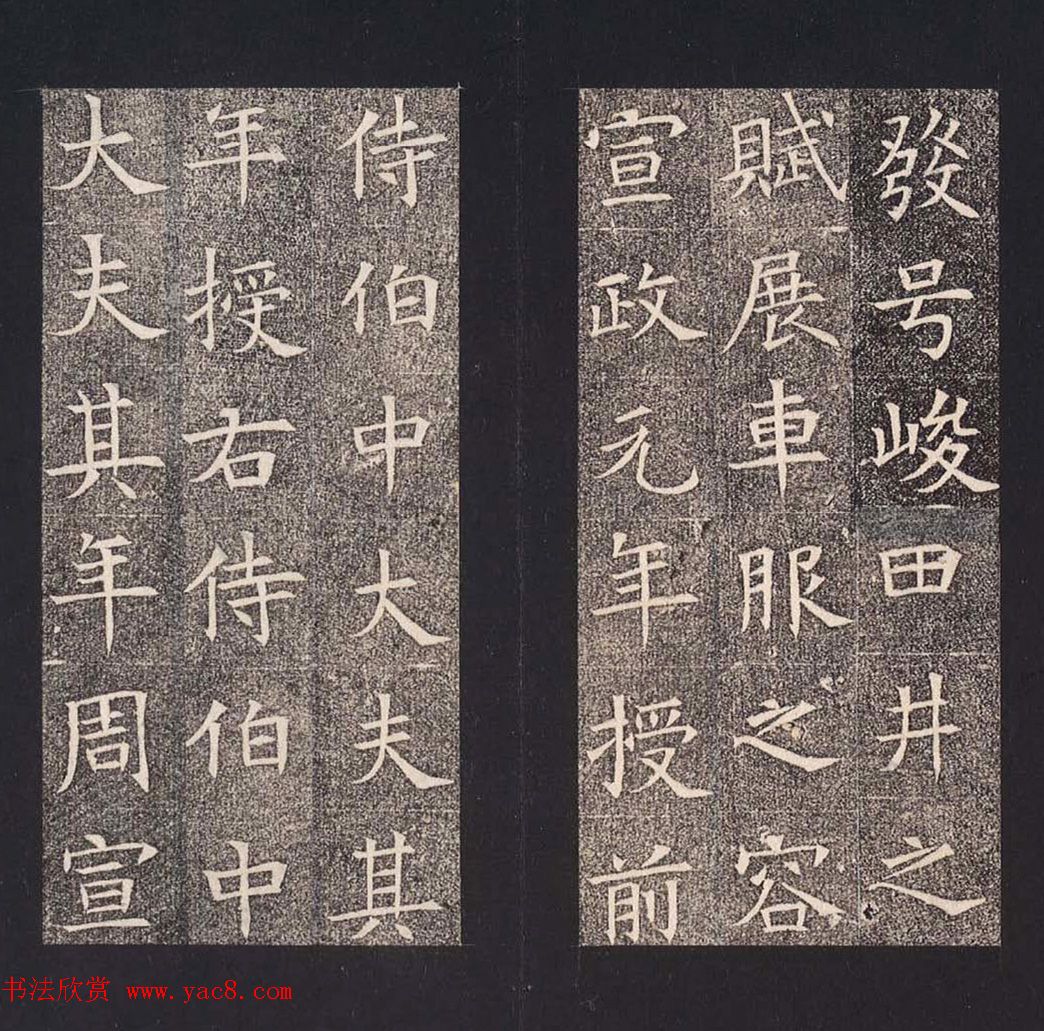 發号峻田井之
賦展車服之容
宣政元年授前
侍伯中大夫其
年授右侍伯中
大夫其年周宣
书法欣赏 www.yac8.com